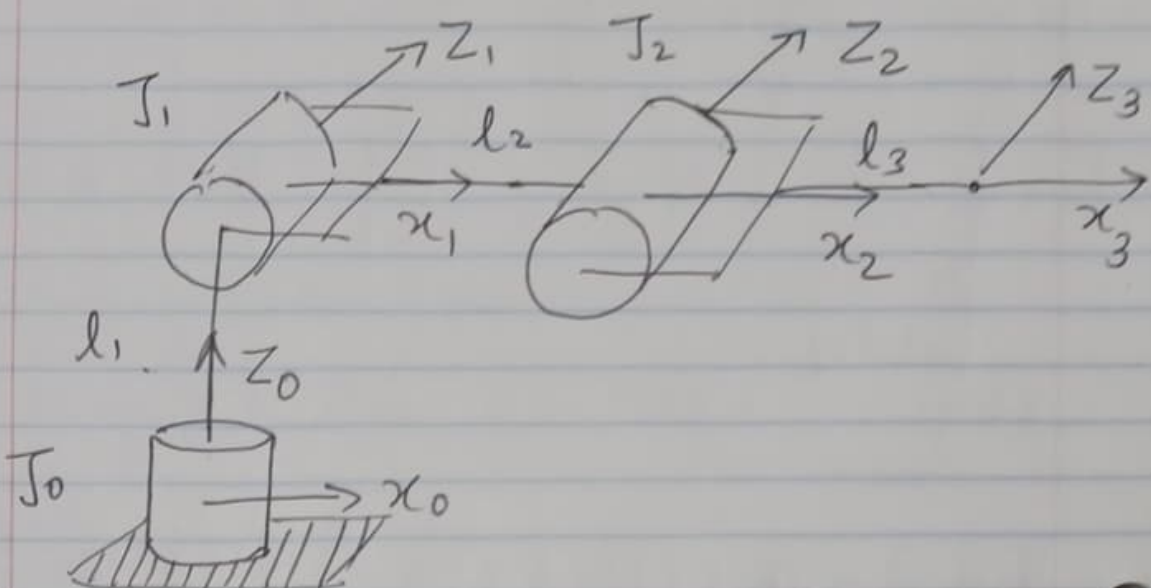 J₁
Z₁
J₂
Z₂
Z₃
l₂
l₃
x₁
x₂
x₃
l₁
Z₀
J₀
x₀